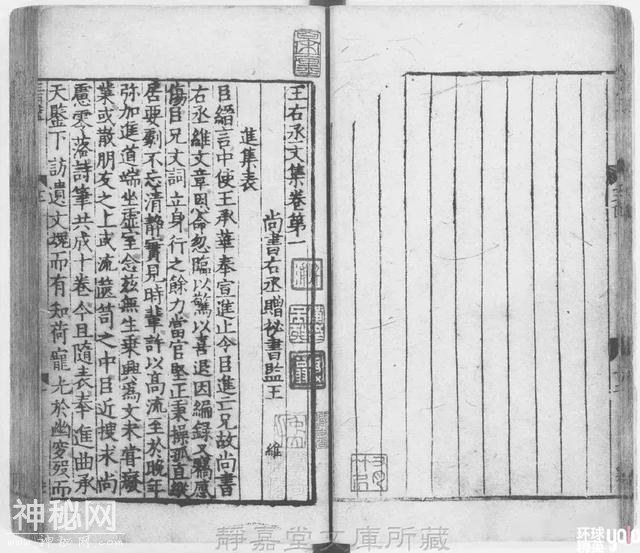 王右丞文集卷第一
尚書右丞贈秘書監王 維
進集表
臣縉言中使王承華奉宣進止令臣進亡兄故尚書
右丞維文章恩命忽臨以驚以喜退因編録又竊感
傷臣兄文詞立身行之餘力當官堅正秉操孤直縱
居要劇不忘清靜實見時輩許以高流至於晚年
弥加進道端坐虛室念兹無生乗興爲文未甞廢
業或散朋友之上或流篋笥之中臣近搜求尚
慮零落詩筆共成十卷今且隨表奉進曲承
天鑒下訪遺文魂而有知荷寵光於幽窆歿而
靜嘉堂文庫所藏
神秘网
环球